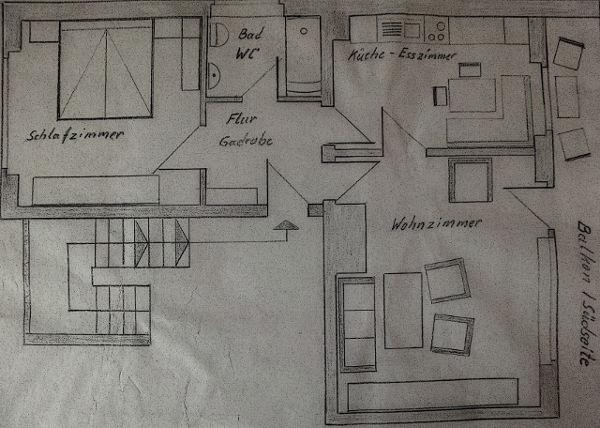 Bad
WC
Küche - Esszimmer
Schlafzimmer
Flur
Gadrobe
Wohnzimmer
Balkon / Südseite